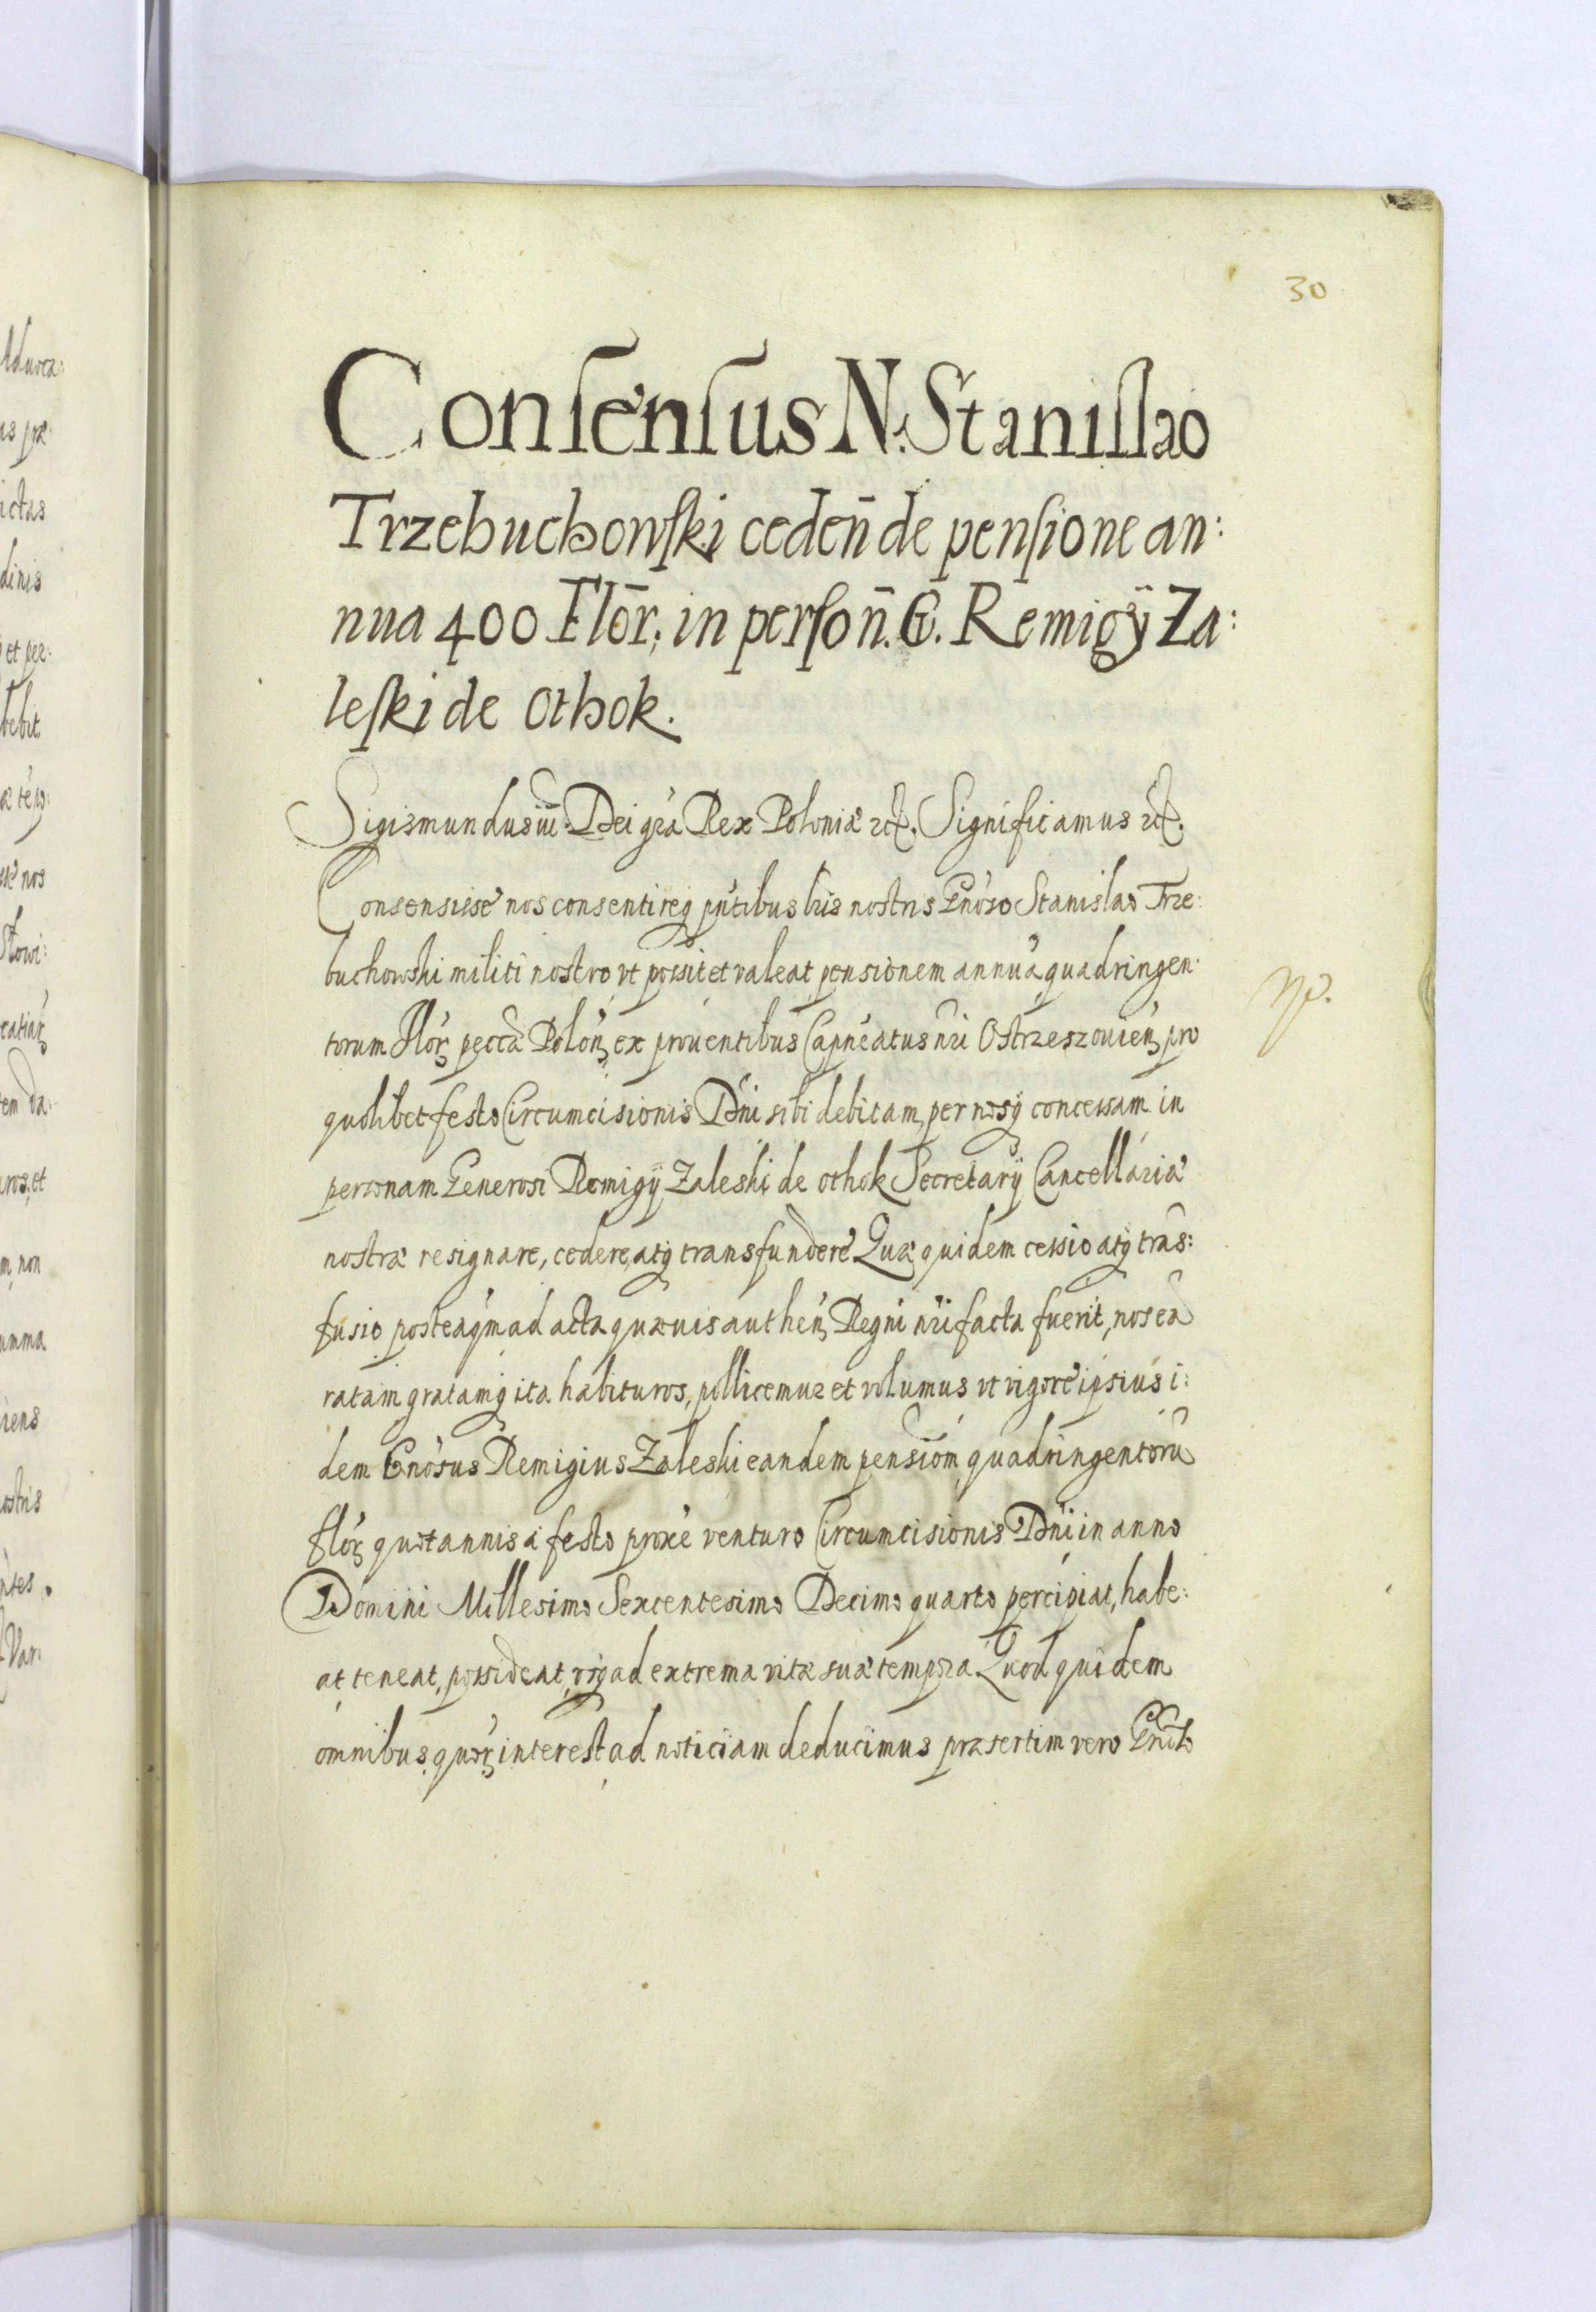 30
Consensus N. Stanislao
Trzebuchowski cedeñ de pensione an:
nua 400 Flor̃; in persoñ. G. Remigÿ Za:
leski de Othok.
Sigismundus iii. Dei gra Rex Poloniæ etc. Significamus etc.
Consensisse nos consentireq pntibus lris nostris Gnoso Stanislao Trze:
buchowski militi nostro vt possit et valeat pensionem annuā quadringen:
torum Flor pecca Polon ex prouentibus Capneatus nri Ostrzeszouien pro
quolibet festo Circumcisionis Dni sibi debitam per nosq concessam in
personam Generosi Remigÿ Zaleski de othok Secretarÿ Cancellariæ
nostræ resignare, cedere, atq transfundere Quæ quidem cessio atq trās:
fusio posteaqm ad acta quæuis authen Regni nri facta fuerit, nos eā
ratam gratamq ita habituros, pollicemur et volumus vt vigore ipsius i:
dem Gnosus Remigius Zaleski eandem pensiom quadringentorū
flor quotannis a festo proxe venturo Circumcisionis Dni in anno
Domini Millesimo Sexcentesimo Decimo quarto percipiat, habe:
at teneat, possideat, vsq ad extrema vitæ suæ tempora Quod quidem
omnibus quor interest ad noticiam deducimus præsertim vero